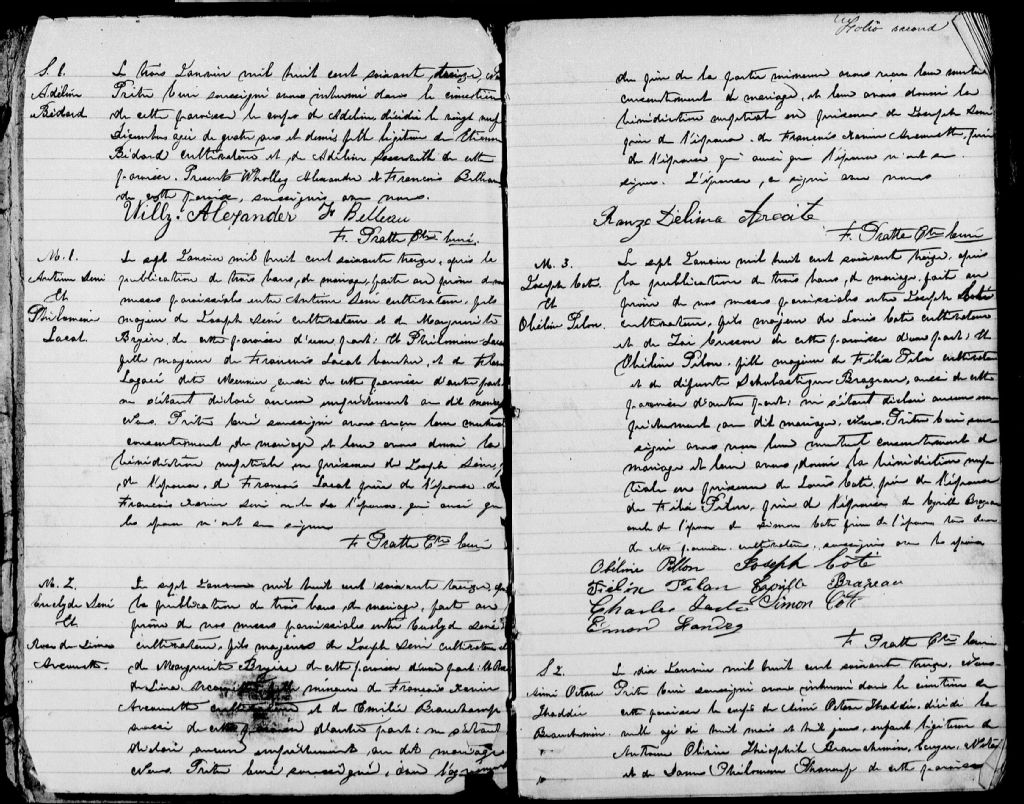 S. 1.
Adéline
Bédard
Le trois Janvier mil huit cent soixante treize, nous
Prêtre Curé soussigné avons inhumé dans le cimetière
de cette paroisse le corps de Adéline, décédée le vingt neuf
Décembre agée de quatre ans et demie fille légitime de
Bédard cultivateur et de Adéline de cette
paroisse. Presents Alexandre et François Belleau
de cette paroisse, soussignés avec nous.
Willy. Alexander F Belleau
F. Pratte Ptre Curé.
M. 1.
Antoine Sené
Et
Philomène
Lacat.
Le sept Janvier mil huit cent soixante treize, après la
publication de trois bans, de mariage, faite au prône de nos
messes paroissiales entre Antoine Sené cultivateur, fils
majeur de Joseph Sené cultivateur et de Marguerite
de cette paroisse d'une part: Et Philomène Lacat
fille majeure de François Lacat et de
dite Meunier aussi de cette paroisse d'autre part:
ne s'étant déclaré aucun empêchement au dit mariage
Nous, Prêtre Curé soussigné avons reçu leur mutuel
consentement de mariage et leur avons donné la
bénédiction nuptiale en présence de Joseph Sené,
de l'époux, de François Lacat père de l'épouse de
François Xavier Sené oncle de l'époux qui ainsi que
les époux n'ont su signer
F. Pratte Ptre Curé
M. 2.
Euclyde Sené
Et
Rose de Lima
Arcouette.
Le sept Janvier mil huit cent soixante treize, après
la publication de trois bans de mariage, faite au
prône de nos messes paroissiales entre Euclyde Sené
cultivateur, fils majeur de Joseph Sené cultivateur et
de Marguerite de cette paroisse d'une part: Et Rose
de Lima Arcouette fille mineure de François Xavier
Arcouette cultivateur et de Emilie Beauchamp
aussi de cette paroisse d'autre part: ne s'étant
déclaré aucun empêchement au dit mariage
Nous, Prêtre Curé soussigné,
Folio second
du père de la partie mineure avons reçu leur mutuel
consentement de mariage, et leur avons donné la
bénédiction nuptiale en présence de Joseph Sené
père de l'époux de François Xavier Arcouette, père
de l'épouse qui ainsi que l'époux n'ont su
signer. L'épouse, a signé avec nous
Délima
F. Pratte Ptre Curé
M. 3.
Joseph Coté.
Et
Obéline Pilon.
Le sept Janvier mil huit cent soixante treize, après
la publication de trois bans, de mariage, faite au
prône de nos messes paroissiales entre Joseph Coté
cultivateur, fils majeur de Louis Coté cultivateur
et de de cette paroisse d'une part: Et
Obéline Pilon. fille majeure de Félix Pilon cultivateur
et de défunte Scholastique Brazeau, aussi de cette
paroisse d'autre part: ne s'étant déclaré aucun em-
pêchement au dit mariage, Nous, Prêtre Curé sous-
signé avons reçu leur mutuel consentement de
mariage et leur avons donné la bénédiction nup-
tiale en présence de Louis Coté père de l'époux
de Félix Pilon, père de l'épouse de Cyrille Brazeau
oncle de l'épouse de Simon Coté frère de l'époux tous deux
de cette paroisse cultivateurs, soussignés avec les époux
Obéline Pilon Joseph Côté
Pilon Brazeau
Charles Simon Côté
F Pratte Ptre Curé
S 2.
Aimé Octave
Thaddée
Beauchemin.
Le dix Janvier mil huit cent soixante treize, Nous
Prêtre Curé soussigné avons inhumé dans le cimetière de
cette paroisse le corps de Aimé Octave Thaddée, décédé la
veille agé de huit mois et huit jours, enfant légitime de
Antoine Olivier Théophile Beauchemin, Ecuyer, Notaire
et de Dame Philomène de cette paroisse